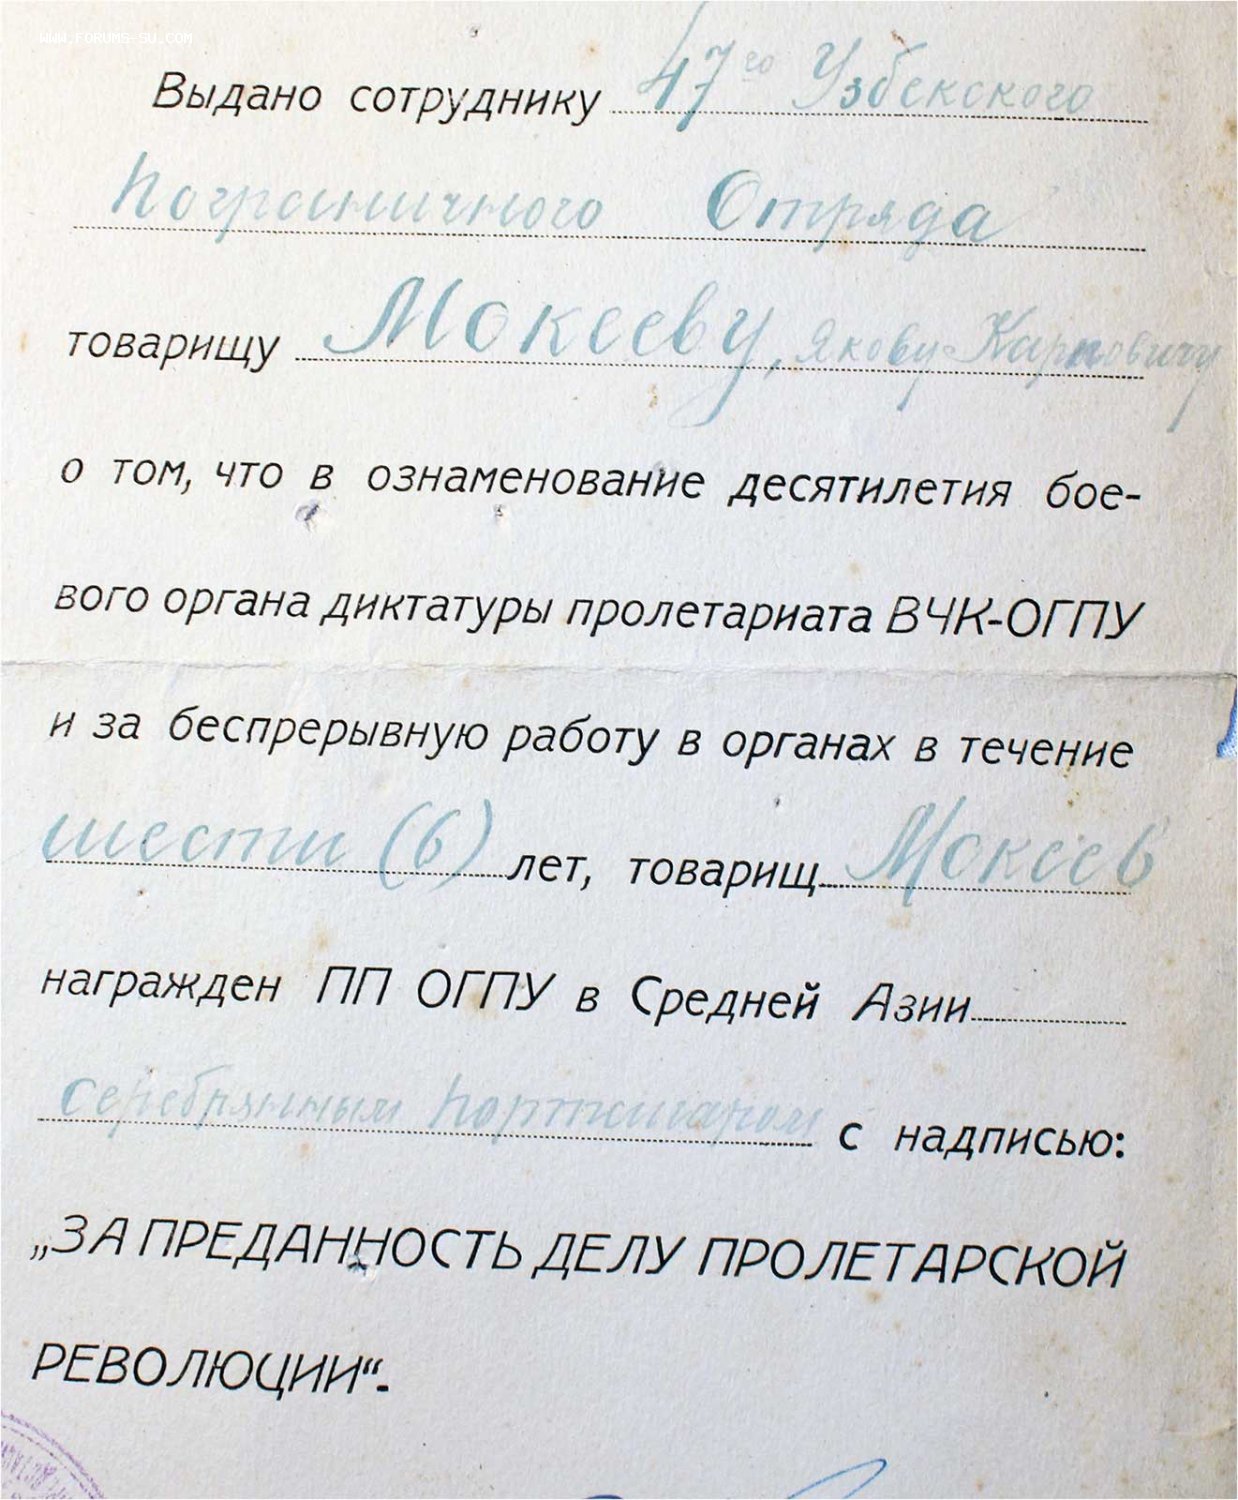 WWW.FORUMS-SU.COM
Выдано сотруднику 47го Узбекского
Пограничного Отряда
товарищу Мокееву, Якову Карповичу
о том, что в ознаменование десятилетия бое-
вого органа диктатуры пролетариата ВЧК-ОГПУ
и за беспрерывную работу в органах в течение
шести (6) лет, товарищ Мокеев
награжден ПП ОГПУ в Средней Азии
серебрянным портсигаром с надписью:
„ЗА ПРЕДАННОСТЬ ДЕЛУ ПРОЛЕТАРСКОЙ
РЕВОЛЮЦИИ“.